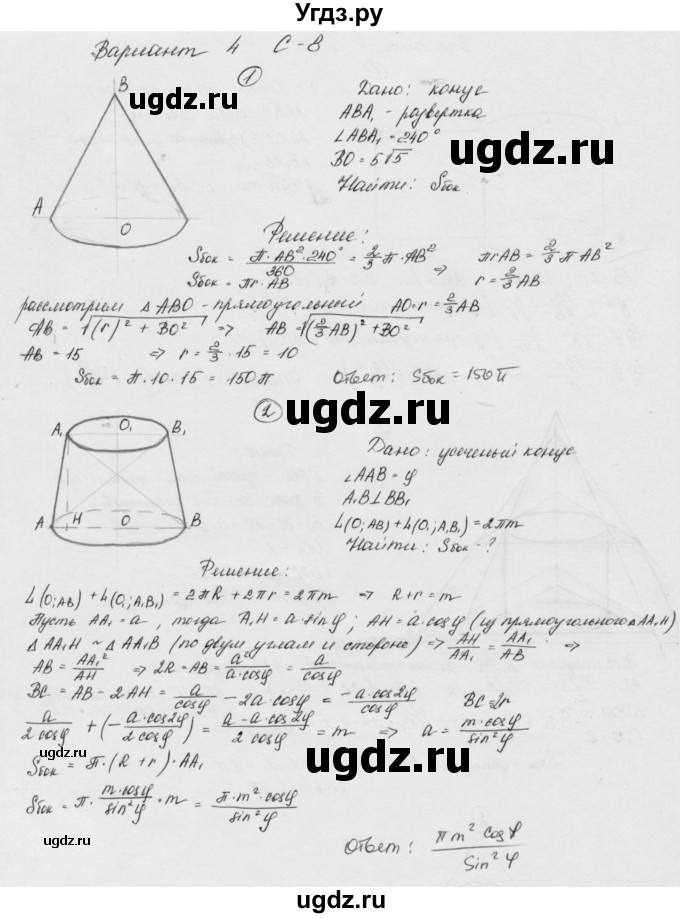 Угдз.ру
Вариант 4 С-8
1
B
A
O
Дано: конус
ABA₁ - развертка
∠ABA₁ = 240°
BO = 5√5
Найти: Sбок.
Решение:
Sбок = π·AB²·240°/360 = 2/3 π·AB²
Sбок = πr·AB ⇒ πrAB = 2/3 πAB²
r = 2/3 AB
рассмотрим △ABO - прямоугольный AO = r = 2/3 AB
AB = √((r)² + BO²) ⇒ AB = √((2/3 AB)² + BO²)
AB = 15 ⇒ r = 2/3 · 15 = 10
Sбок = π·10·15 = 150π Ответ: Sбок = 150π
2
A₁ O₁ B₁
A H O B
Дано: усеченый конус
∠AAB = φ
A₁B⊥BB₁
4(O; AB) + 4(O₁; A₁B₁) = 2πm
Найти: Sбок - ?
Решение:
4(O; AB) + 4(O₁; A₁B₁) = 2πR + 2πr = 2πm ⇒ R + r = m
Пусть AA₁ = a, тогда A₁H = a·sinφ; AH = a·cosφ (из прямоугольного △AA₁H)
△AA₁H ~ △AA₁B (по двум углам и стороне) ⇒ AH/AA₁ = AA₁/AB ⇒
AB = AA₁²/AH ⇒ 2R = AB = a²/a·cosφ = a/cosφ
BC = AB - 2AH = a/cosφ - 2a·cosφ = -a·cos2φ/cosφ BC = 2r
a/2cosφ + (- a·cos2φ/2cosφ) = a - a·cos2φ/2cosφ = m ⇒ a = m·cosφ/sin²φ
Sбок = π·(R + r)·AA₁
Sбок = π · m·cosφ/sin²φ · m = π·m²·cosφ/sin²φ
Ответ: πm² cosφ/Sin²φ
ugdz.ru
ugdz.ru
ugdz.ru
ugdz.ru
ugdz.ru
ugdz.ru
ugdz.ru